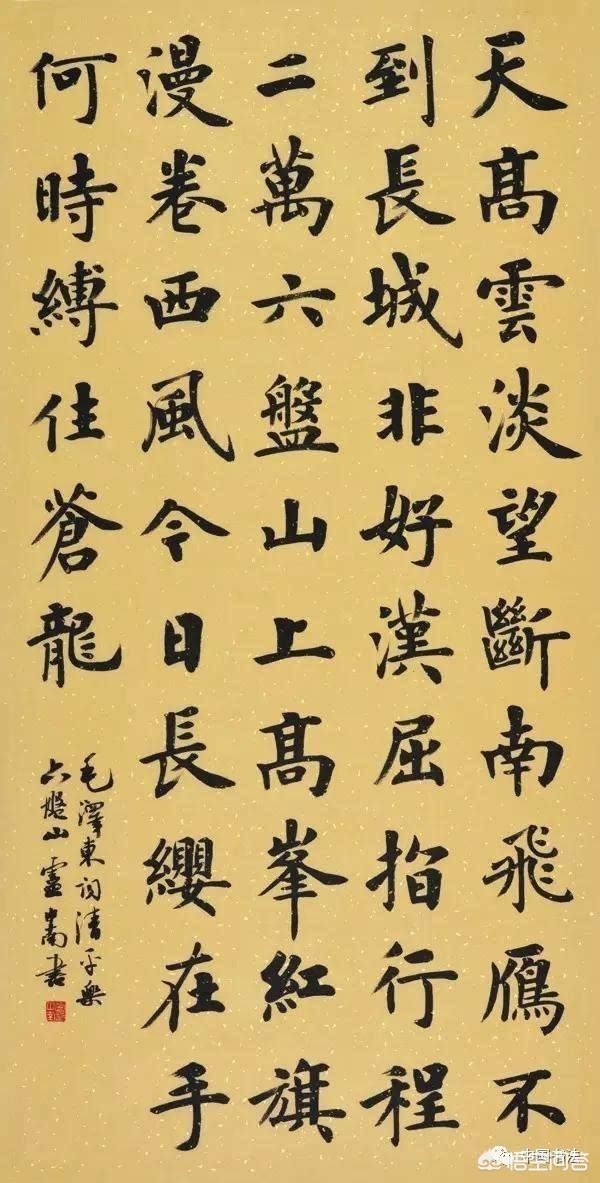 天髙雲淡望斷南飛鴈不
到長城非好漢屈指行程
二萬六盤山上髙峯紅旗
漫卷西風今日長纓在手
何時縛住蒼龍
毛澤東詞清平樂
六盤山盧中南書
中国书法
悟空问答